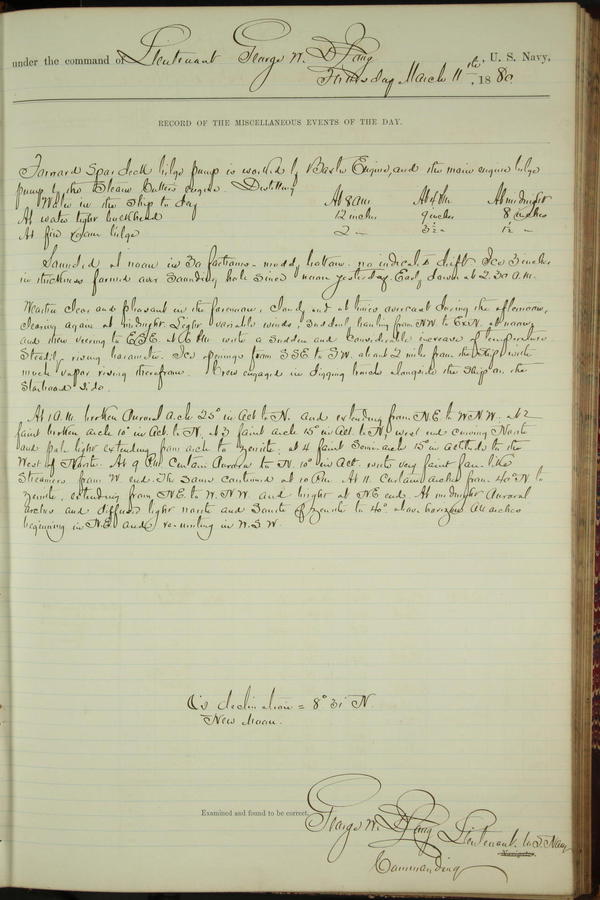 under the command of Lieutenant George W. De Long, U. S. Navy,
Thursday March 11th, 1880
RECORD OF THE MISCELLANEOUS EVENTS OF THE DAY.
Forward Spar deck bilge pump is worked by Baxter Engine, and the main engine bilge
pump by the Steam Cutters engine. Distilling
Water in the Ship to day At 8 AM At 4 PM At midnight
At water tight bulkhead 12 inches 9 inches 8 inches
At fire room bilge 2 " 3½ " 1½ "
Sounded at noon in 30 fathoms - muddy bottom - no indicated drift. Ice 3 inches
in thickness formed over Sounding hole since noon yesterday. Early dawn at 2.30 A.M.
Weather clear and pleasant in the forenoon, cloudy and at times overcast during the afternoon,
clearing again at midnight. Light variable winds, suddenly hauling from NW to ExN. at noon,
and then veering to ESE. at 6 PM with a sudden and considerable increase of temperature.
Steadily rising barometer. Ice openings from SSE to SW. about 2 miles from the Ship, with
much vapor rising therefrom. Crew engaged in digging trench alongside the Ship on the
Starboard Side.
At 1 A.M. broken Auroral arch 25° in Alt to N. and extending from N.E. to W.N.W. at 2
faint broken arch 10° in Alt. to N. at 3 faint arch 15° in Alt to N. west end curving North
and pale light extending from arch to Zenith; at 4 faint Semi-arch 15° in altitude to the
West of North. At 9 PM Curtain Aurora to N. 10° in Alt. with very faint fan like
Streamers from W. end. The same continued at 10 PM. At 11 Curtain arches from 40° N. to
Zenith, extending from N.E. to W.N.W. and bright at NE end. At midnight Auroral
arches and diffused light north and South of zenith to 40° above horizon. All arches
beginning in N.E. and re-uniting in W.S.W.
☾'s declination = 8° 31' N.
New Moon.
Examined and found to be correct.
George W. De Long Lieutenant U.S. Navy
Navigator.
Commanding